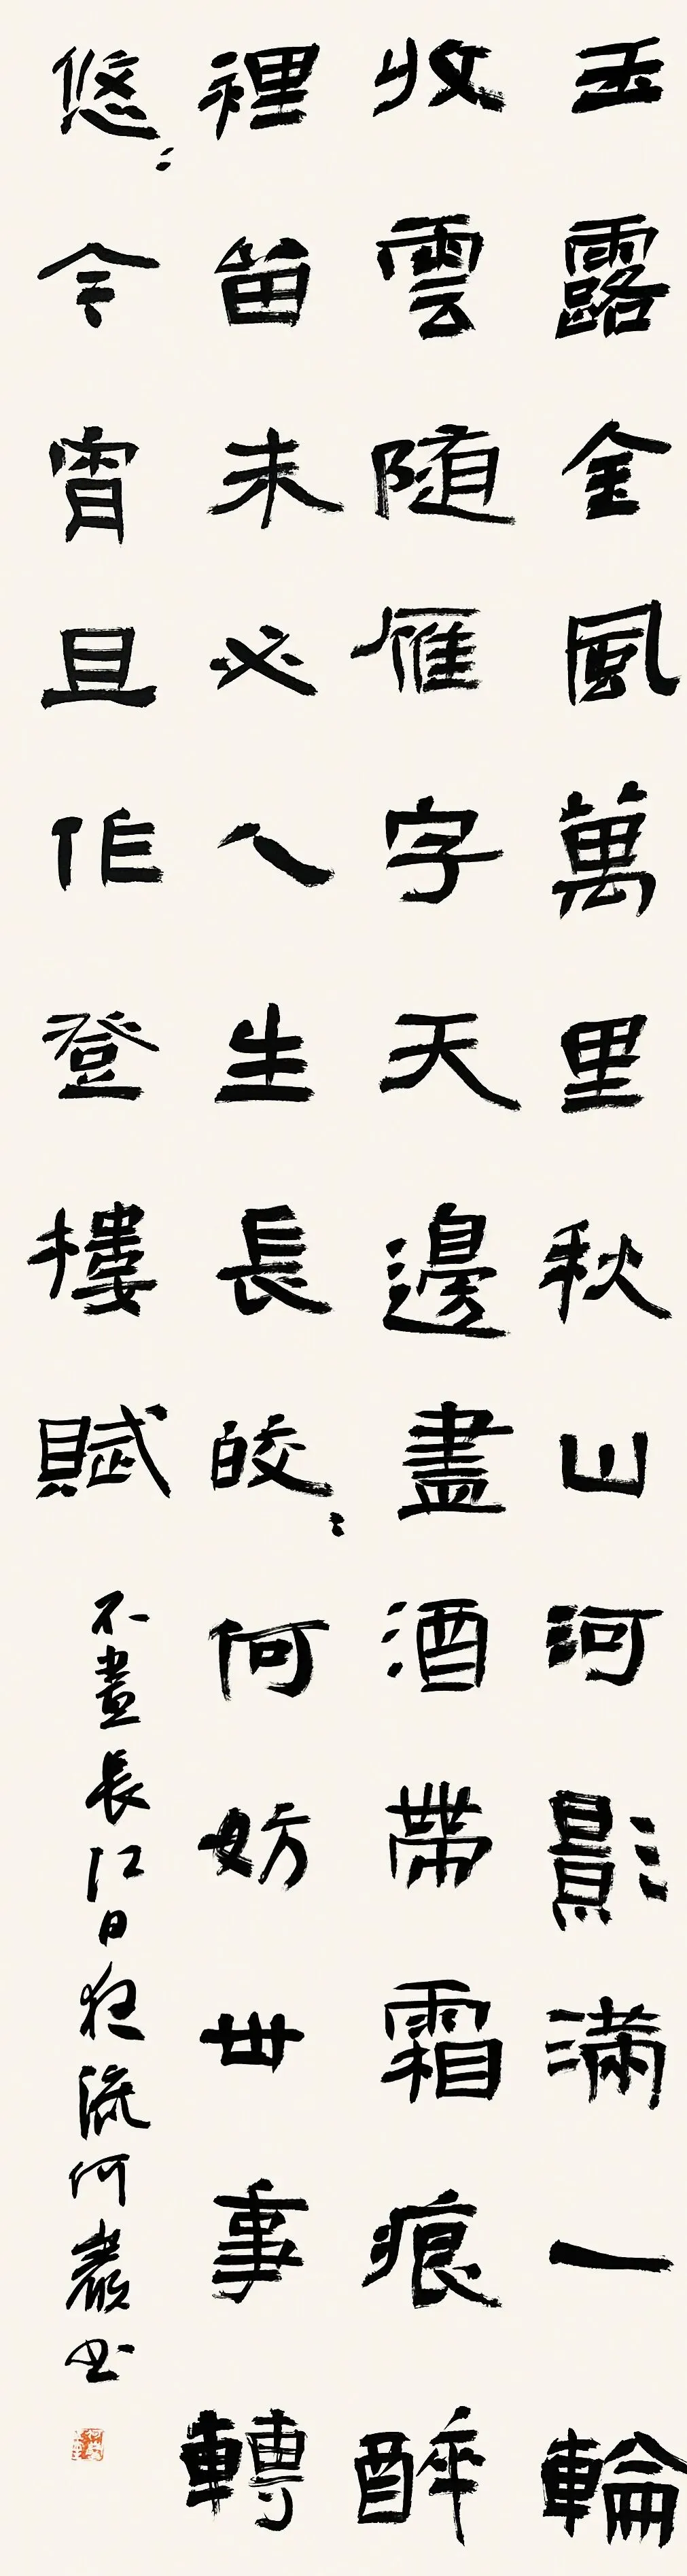 玉露金風萬里秋山河影滿一輪
收雲随雁字天邊盡酒帶霜痕醉
裡留未必人生長皎〻何妨世事轉
悠〻今宵且作登樓賦
不盡長江日夜流何书